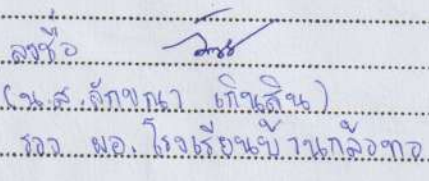 ลงชื่อ
(น.ส.ลักขณา เกินสิน)
รอง ผอ. โรงเรียนบ้านกล้อทอ